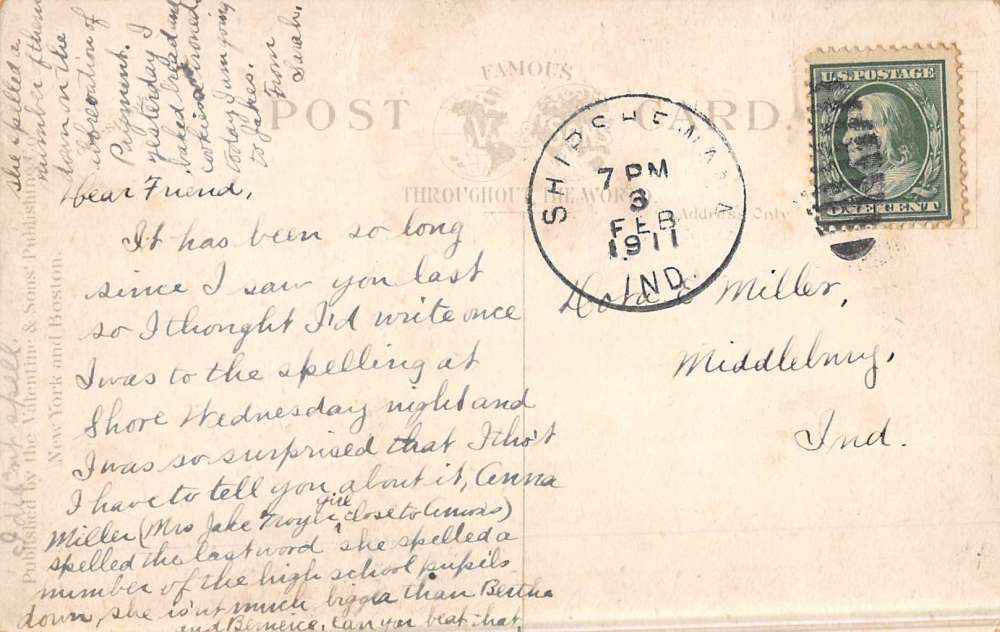 FAMOUS
POST CARD.
THROUGHOUT THE WORLD
Address Only
U.S. POSTAGE
ONE CENT
SHIPSHEWANA
7 PM
3
FEB
1911
IND.
Dora E Miller,
Middlebury,
Ind.
Dear Friend,
It has been so long
since I saw you last
so I thought I'd write once
I was to the spelling at
Shore Wednesday night and
I was so surprised that I tho't
I have to tell you about it, Anna
Miller (Mrs Jake Troyer girl close to Amos)
spelled the last word she spelled a
number of the high school pupils
down, she isn't much bigger than Bertha
and Berniece, can you beat that,
she spelled a
number of them
down in the
of
Payment.
yesterday I
baked bread and
cookies & ironed
today I am going
to Jakes.
from
Sarah.
I didn't spell.
Published by the Valentine & Sons' Publishing
New York and Boston.